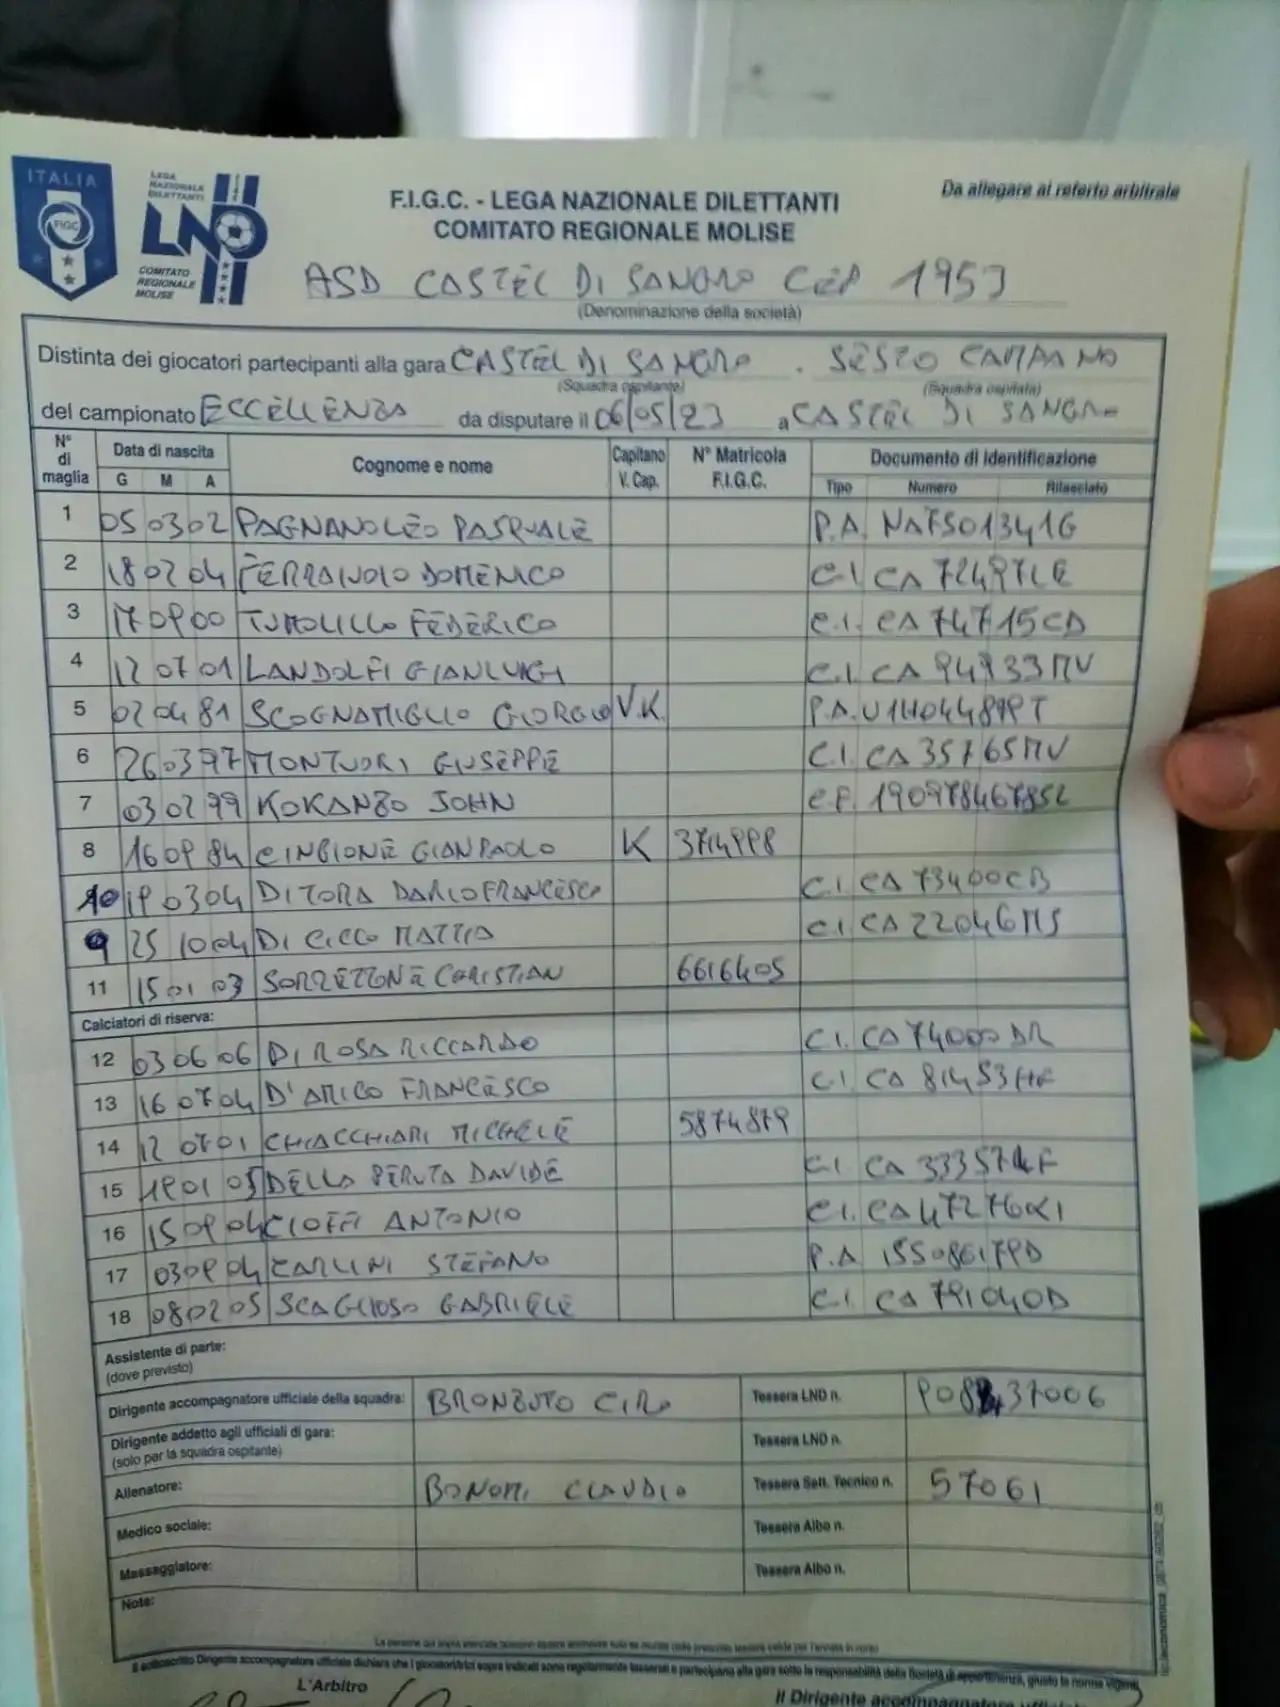 ITALIA
FIGC
LEGA NAZIONALE DILETTANTI
LND
COMITATO REGIONALE MOLISE
Da allegare al referto arbitrale
F.I.G.C. - LEGA NAZIONALE DILETTANTI
COMITATO REGIONALE MOLISE
ASD CASTEL DI SANGRO CEP 1953
(Denominazione della società)
Distinta dei giocatori partecipanti alla gara CASTEL DI SANGRO - SESTO CAMPANO
(Squadra ospitante) (Squadra ospitata)
del campionato ECCELLENZA da disputare il 06/05/23 a CASTEL DI SANGRO
N° di maglia Data di nascita G M A Cognome e nome Capitano V. Cap. N° Matricola F.I.G.C. Documento di identificazione Tipo Numero Rilasciato
1 05 03 02 PAGNANOLEO PASQUALE P.A. NA7501341G
2 18 02 04 FERRAIUOLO DOMENICO C.I. CA72497LE
3 17 09 00 TUMOLILLO FEDERICO C.I. CA74715CD
4 12 07 01 LANDOLFI GIANLUIGI C.I. CA94933MV
5 02 04 81 SCOGNAMIGLIO GIORGIO V.K. P.A. U14044899T
6 26 03 97 MONTUORI GIUSEPPE C.I. CA35765MV
7 03 02 99 KOKANZO JOHN C.F. 190978467852
8 16 09 84 CINGIONE GIANPAOLO K 3714998
10 19 03 04 DI TORA DARIO FRANCESCO C.I. CA73400CB
9 25 10 04 DI CICCO MATTIA C.I. CA22046MS
11 15 01 03 SORRETONE CHRISTIAN 6616405
Calciatori di riserva:
12 03 06 06 DI ROSA RICCARDO C.I. CA74000DR
13 16 07 04 D'AMICO FRANCESCO C.I. CA81453HF
14 12 07 01 CHIACCHIARI MICHELE 5874879
15 19 01 05 DELLA PERUTA DAVIDE C.I. CA33357LF
16 15 09 04 CIOFFI ANTONIO C.I. CA47276XI
17 03 09 04 CARLINI STEFANO P.A. 155086179D
18 08 02 05 SCAGLIOSO GABRIELE C.I. CA79104OD
Assistente di parte:
(dove previsto)
Dirigente accompagnatore ufficiale della squadra: BRONZUTO CIRO Tessera LND n. 37006
Dirigente addetto agli ufficiali di gara: Tessera LND n.
(solo per la squadra ospitante)
Allenatore: BONOMI CLAUDIO Tessera Sett. Tecnico n. 57061
Medico sociale: Tessera Albo n.
Massaggiatore: Tessera Albo n.
Note:
Il sottoscritto Dirigente accompagnatore ufficiale dichiara che i giocatori/trici sopra indicati sono regolarmente tesserati e partecipano alla gara sotto la responsabilità della Società di appartenenza, giusto le norme vigenti.
L'Arbitro Il Dirigente accompagnatore ufficiale